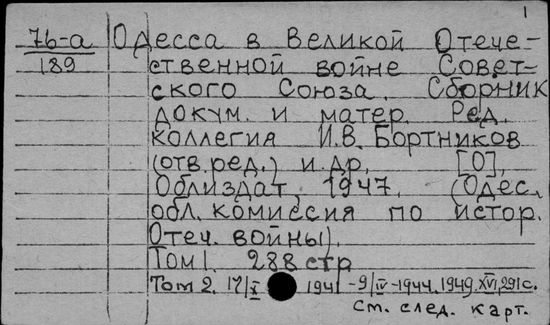 1
76-а Одесса в Великой Отече-
189 ственной войне Совет-
ского Союза. Сборник
докум. и матер. Ред.
коллегия И.В. Бортников
(отв. ред.) и др. [О],
Облиздат, 1947. (Одес.
обл. комиссия по истор.
Отеч. войны).
Том I. 288 стр
Том 2. 17/X 1941 -9/IV-1944. 1949. XVI, 291 с.
См. след. карт.